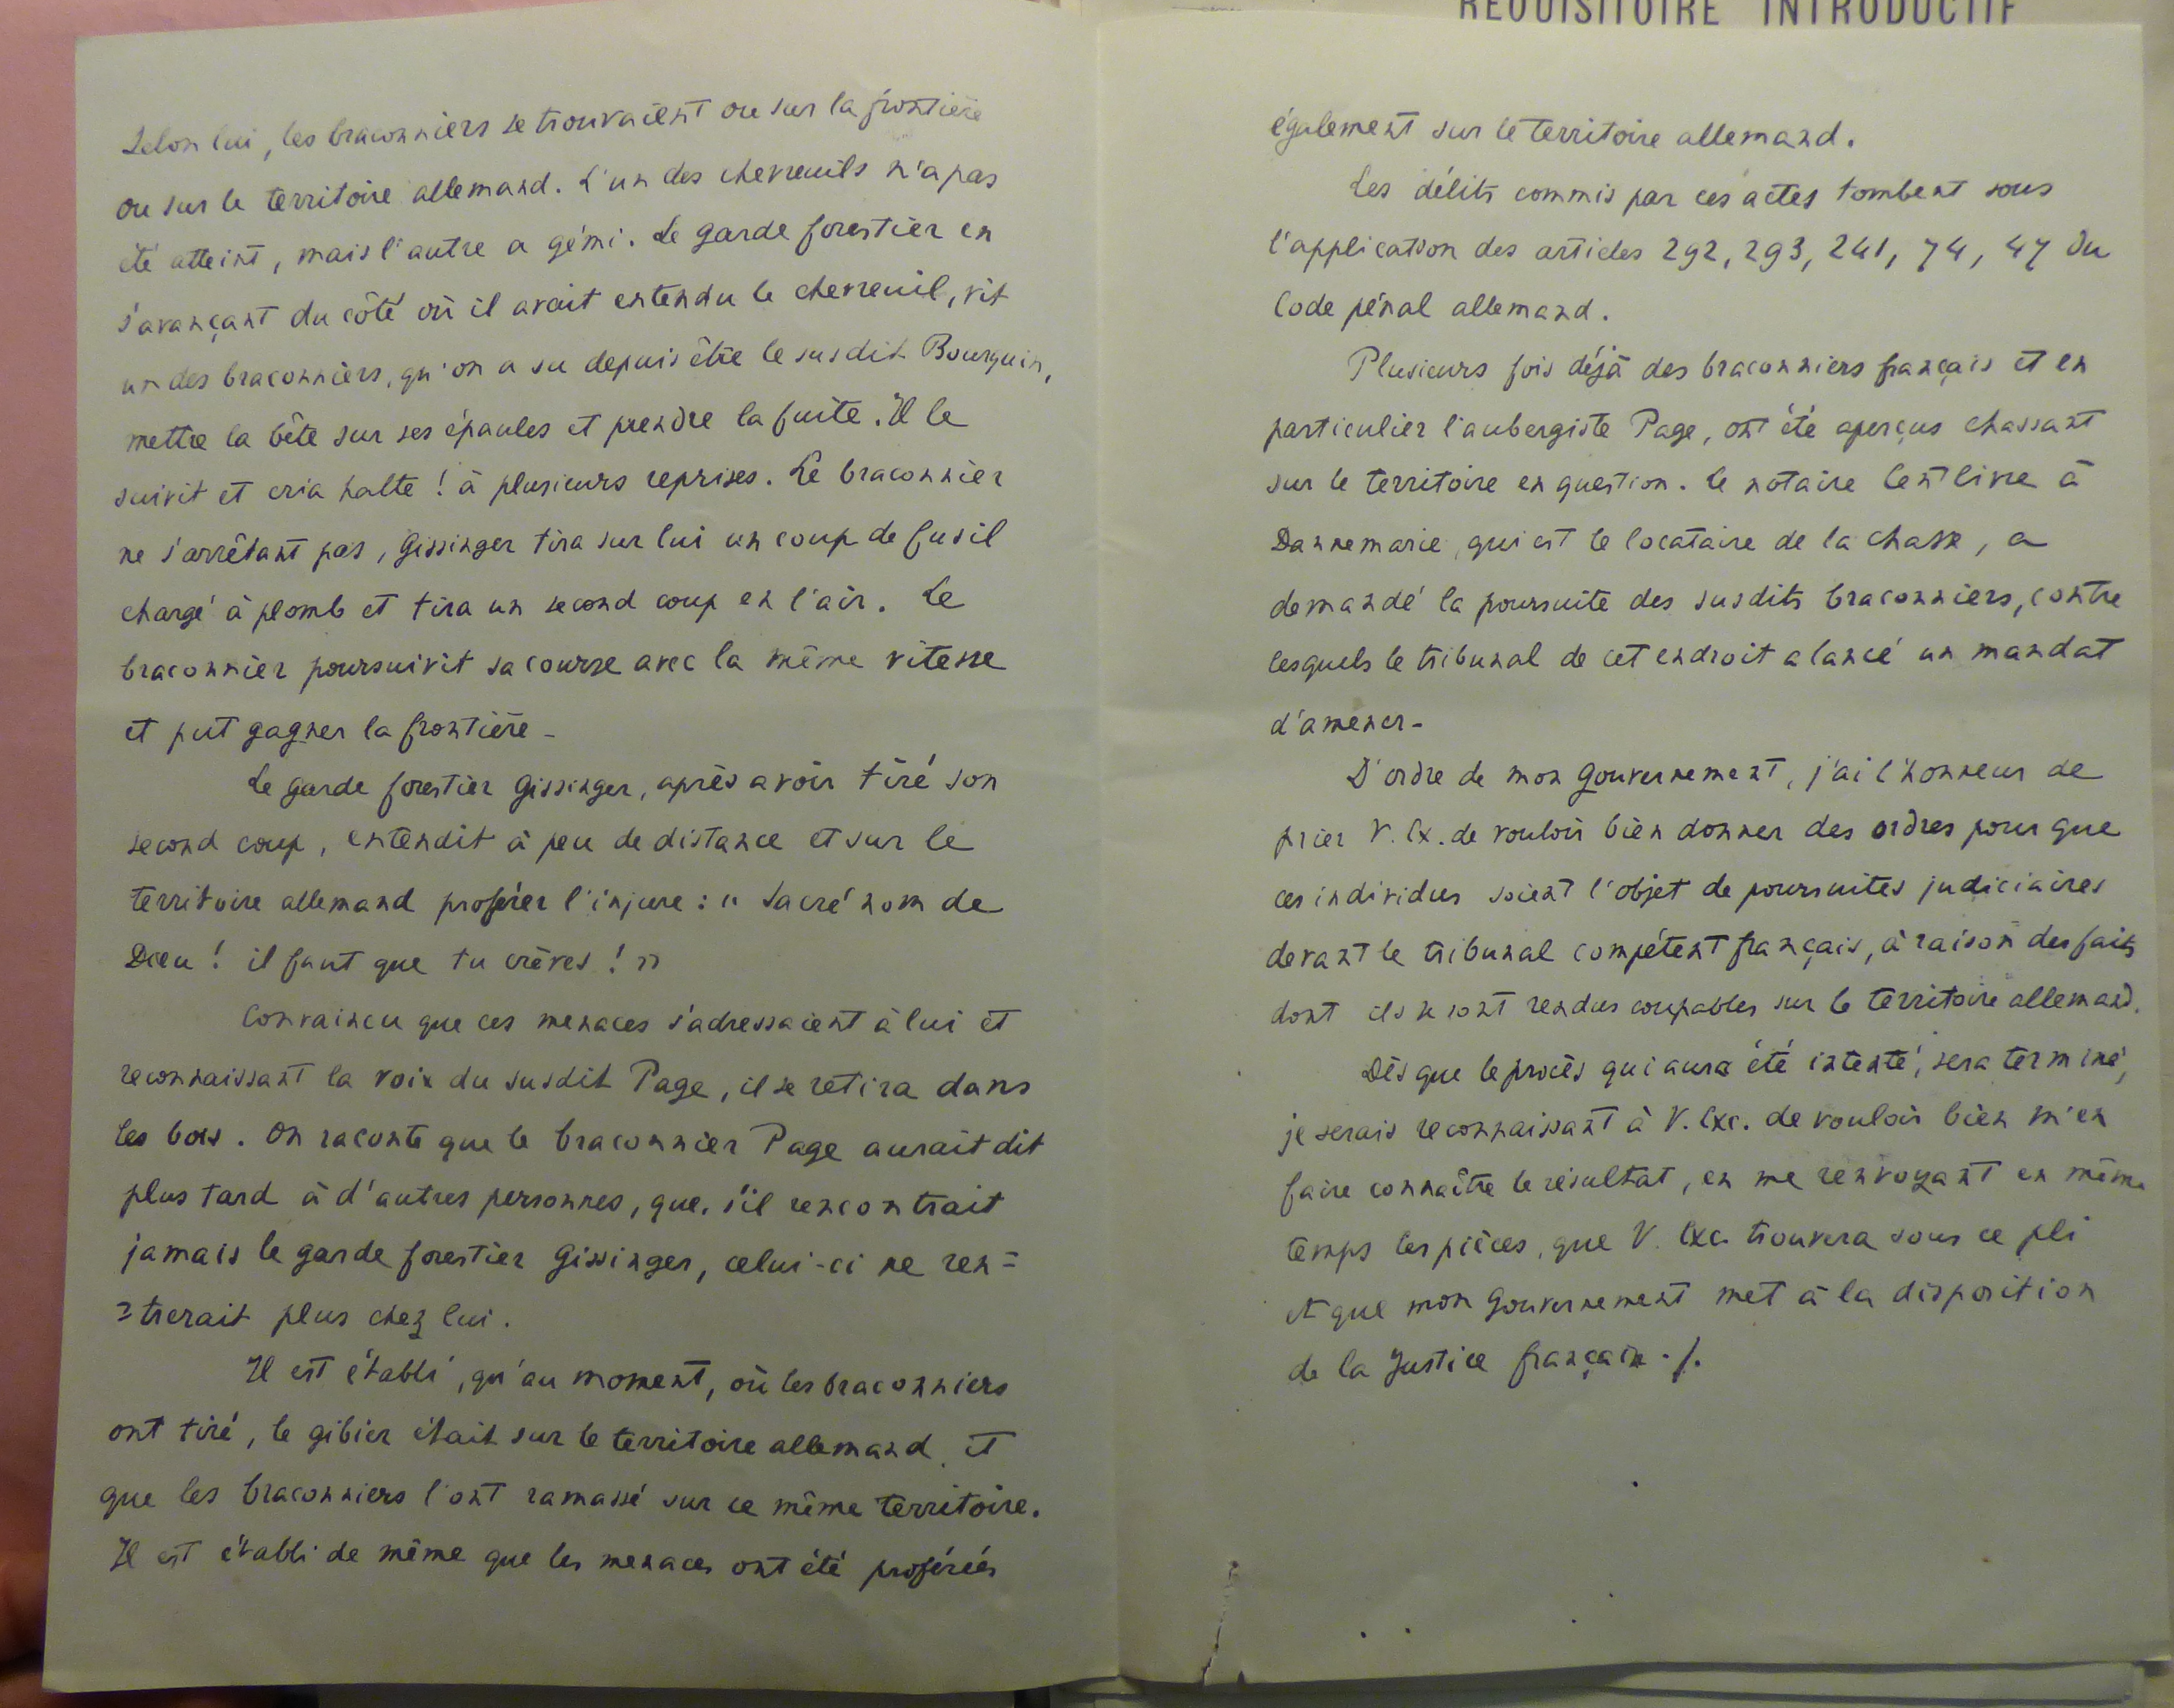 REQUISITOIRE INTRODUCTIF
Selon lui, les braconniers se trouvaient ou sur la frontière
ou sur le territoire allemand. L'un des chevreuils n'a pas
été atteint, mais l'autre a gémi. Le garde forestier en
s'avançant du côté où il avait entendu le chevreuil, vit
un des braconniers, qu'on a su depuis être le susdit Bourquin,
mettre la bête sur ses épaules et prendre la fuite. Il le
suivit et cria halte ! à plusieurs reprises. Le braconnier
ne s'arrêtant pas, Gissinger tira sur lui un coup de fusil
chargé à plomb et tira un second coup en l'air. Le
braconnier poursuivit sa course avec la même vitesse
et put gagner la frontière -
Le garde forestier Gissinger, après avoir tiré son
second coup, entendit à peu de distance et sur le
territoire allemand proférer l'injure : " Sacré nom de
Dieu ! il faut que tu crèves ! "
Convaincu que ces menaces s'adressaient à lui et
reconnaissant la voix du susdit Page, il se retira dans
les bois. On raconte que le braconnier Page aurait dit
plus tard à d'autres personnes, que, s'il rencontrait
jamais le garde forestier Gissinger, celui-ci ne ren=
=trerait plus chez lui.
Il est établi, qu'au moment, où les braconniers
ont tiré, le gibier était sur le territoire allemand et
que les braconniers l'ont ramassé sur ce même territoire.
Il est établi de même que les menaces ont été proférées
également sur le territoire allemand.
Les délits commis par ces actes tombent sous
l'application des articles 292, 293, 241, 74, 47 du
Code pénal allemand.
Plusieurs fois déjà des braconniers français et en
particulier l'aubergiste Page, ont été aperçus chassant
sur le territoire en question. Le notaire Centlivre à
Dannemarie, qui est le locataire de la chasse, a
demandé la poursuite des susdits braconniers, contre
lesquels le tribunal de cet endroit a lancé un mandat
d'amener -
D'ordre de mon Gouvernement, j'ai l'honneur de
prier V. Ex. de vouloir bien donner des ordres pour que
ces individus soient l'objet de poursuites judiciaires
devant le tribunal compétent français, à raison des faits
dont ils se sont rendus coupables sur le territoire allemand.
Dès que le procès qui aura été intenté, sera terminé,
je serais reconnaissant à V. Exc. de vouloir bien m'en
faire connaître le résultat, en me renvoyant en même
temps les pièces, que V. Exc. trouvera sous ce pli
et que mon Gouvernement met à la disposition
de la Justice française ./.